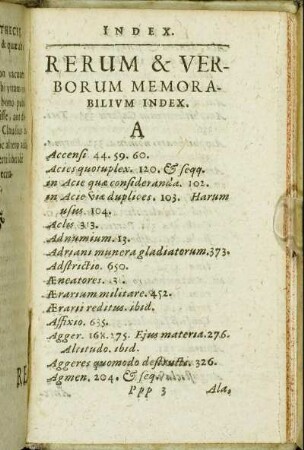 INDEX.
RERUM & VER-
BORUM MEMORA-
BILIVM INDEX.
A
Accensi 44. 59. 60.
Acies quotuplex. 120. & seqq.
in Acie quæ consideranda. 102.
in Acie viæ duplices. 103. Harum
usus. 104.
Aclis 313.
Adnumium. 13.
Adriani munera gladiatorum. 373.
Adstrictio. 650.
Æneatores.
Ærarium militare. 452.
Ærarii reditus. ibid.
Affixio. 635.
Agger. 275. Ejus materia. 276.
Altitudo. ibid.
Aggeres quomodo destructi. 326.
Agmen. 204. & seq.
Ppp 3
Ala,